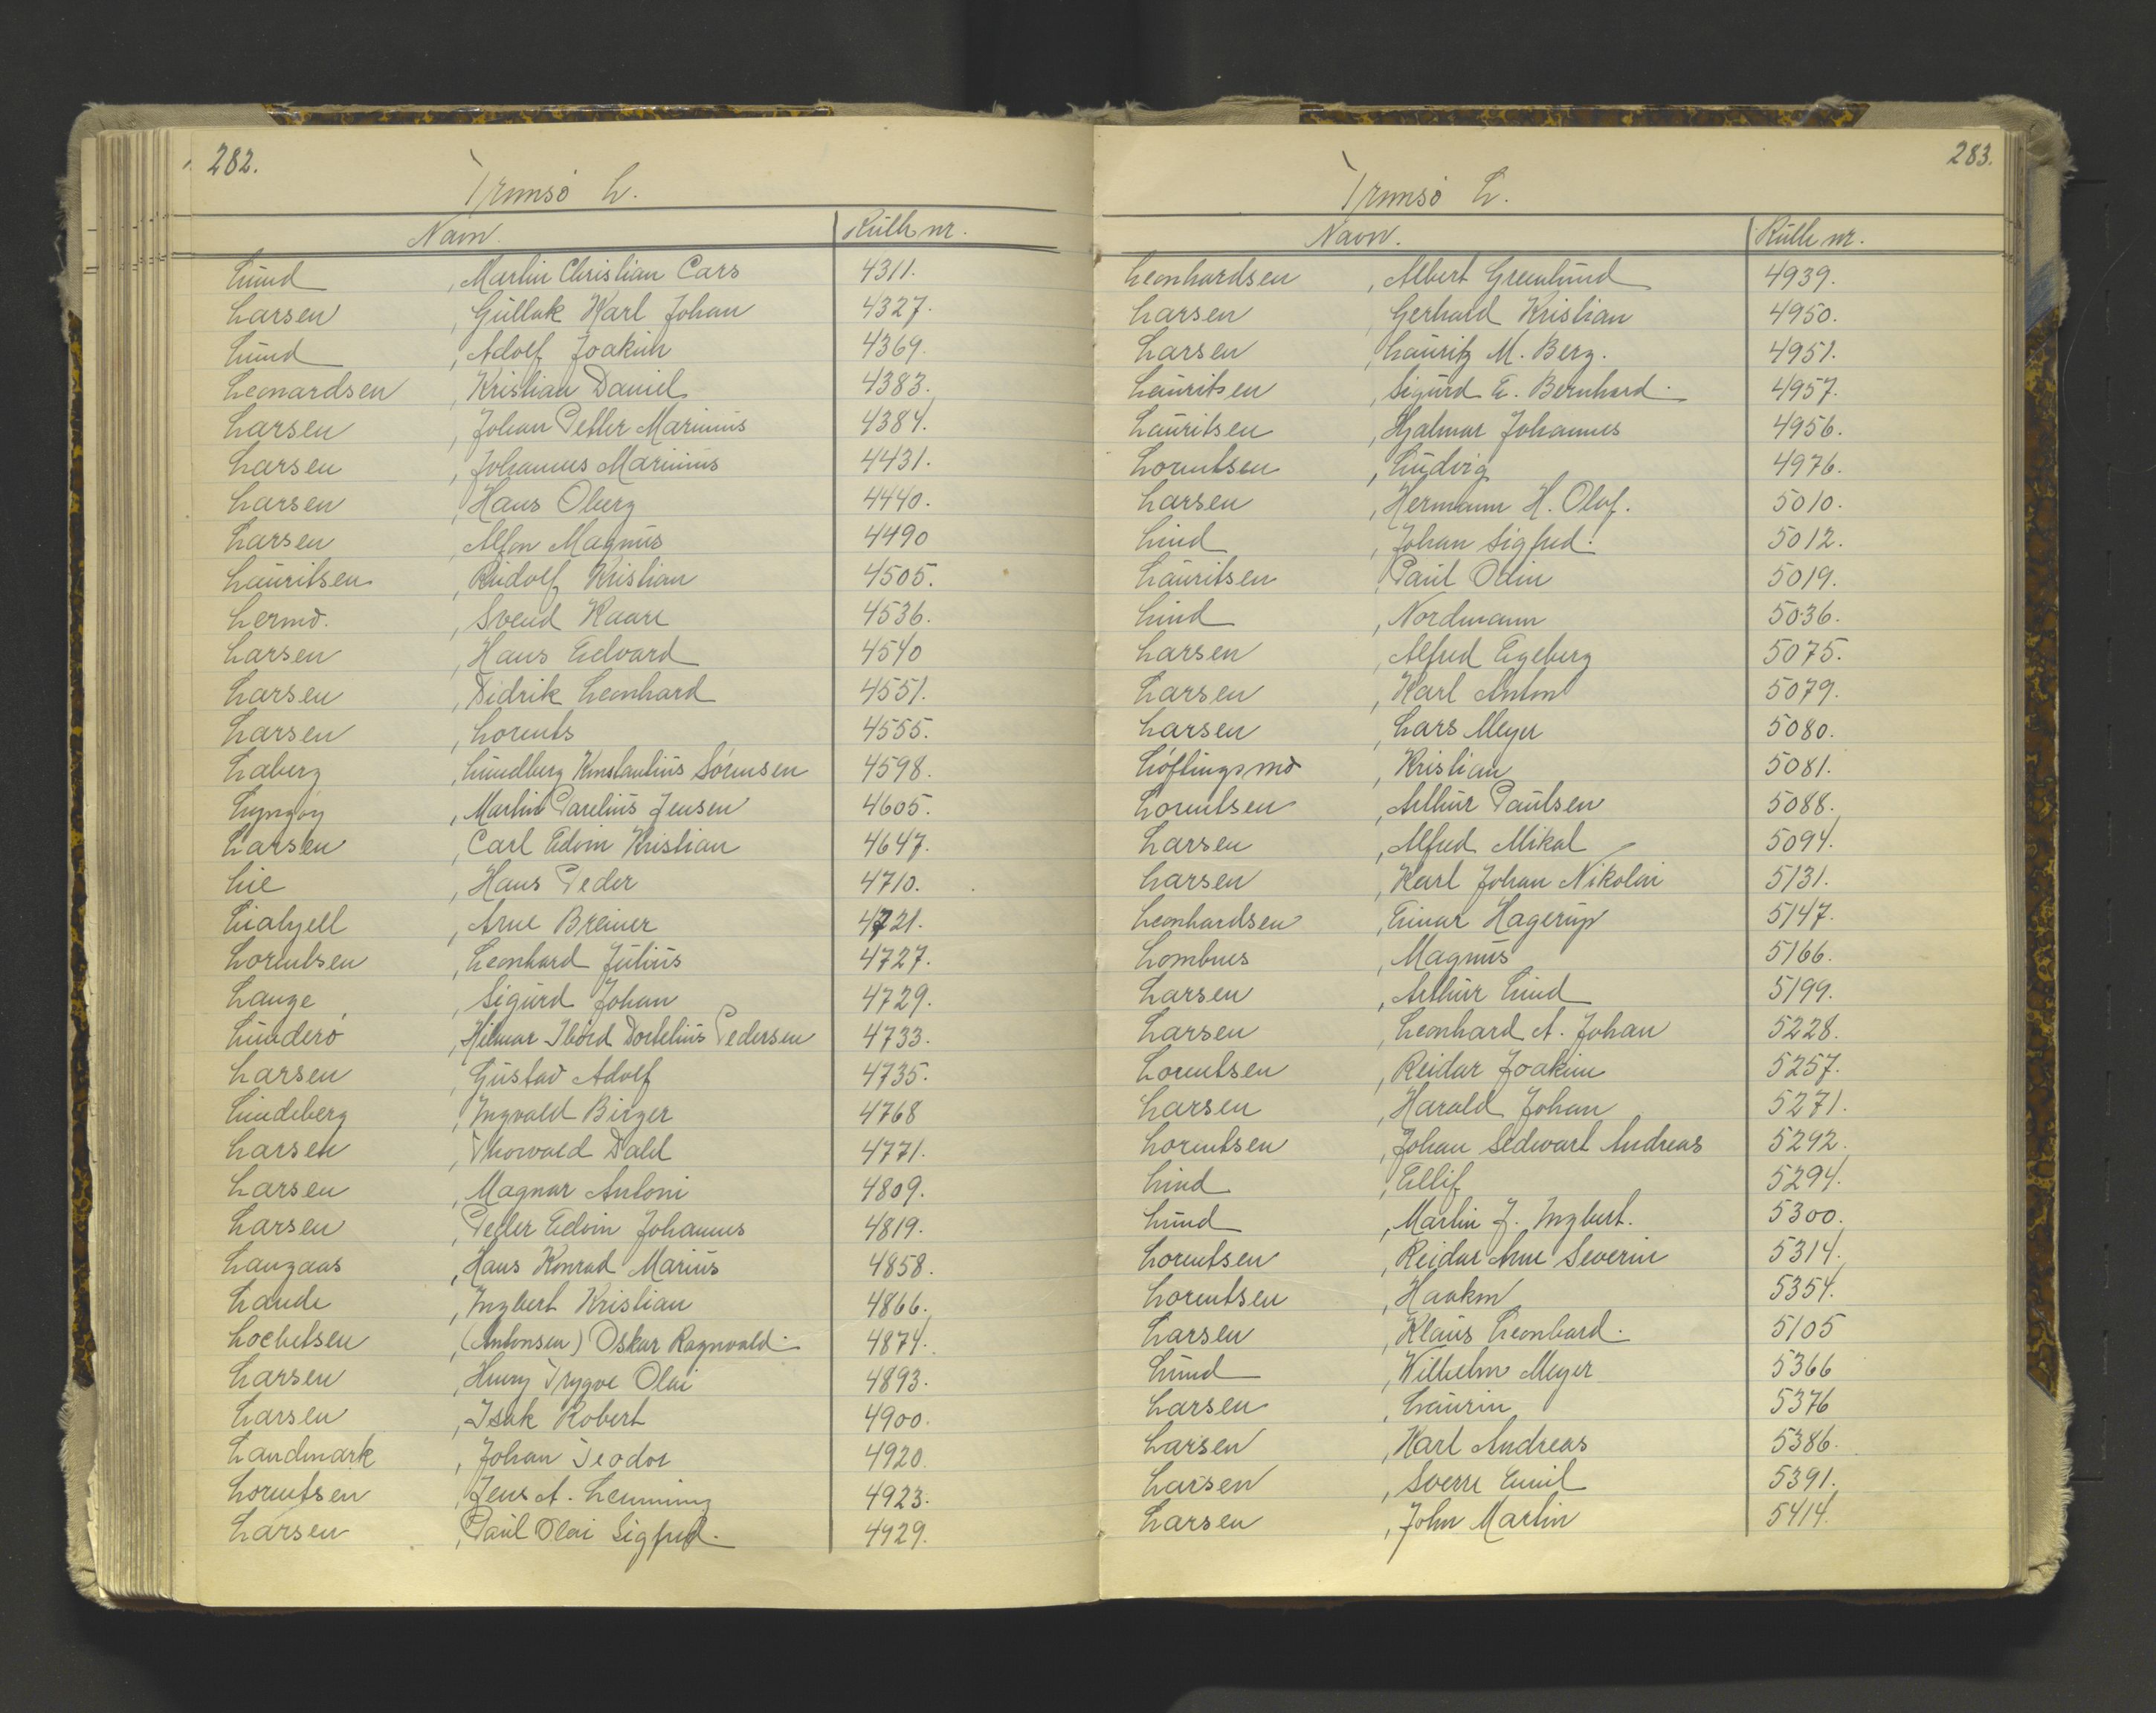 282.
Tromsø L.
Navn. Rulle nr.
Lund, Martin Christian Cars 4311.
Larsen, Gullak Karl Johan 4327.
Lund, Adolf Joakim 4369.
Leonardsen, Kristian Daniel 4383.
Larsen, Johan Petter Marinius 4384.
Larsen, Johannes Marinius 4431.
Larsen, Hans Oberg 4440.
Larsen, Alfon Magnus 4490
Lauritsen, Rudolf Kristian 4505.
Lermo., Svend Kaare 4536.
Larsen, Hans Edvard 4540
Larsen, Didrik Leonhard 4551.
Larsen, Lorents 4555.
Laberg, Lundberg Konstantius Sørensen 4598.
Lyngøy, Martin Parelius Jensen 4605.
Larsen, Carl Edvin Kristian 4647.
Lie, Hans Peder 4710.
Arne Breiner 4721.
Lorentsen, Leonhard Julius 4727.
Lange, Sigurd Johan 4729.
Lunderø, Hilmar Dortelius Pedersen 4733.
Larsen, Gustav Adolf 4735.
Lindeberg, Ingvald Birger 4768
Larsen, Thorvald Dahl 4771.
Larsen, Magnar Antoni 4809.
Larsen, Petter Edvin Johannes 4819.
Langaas, Hans Konrad Marius 4858.
Lande, Ingbert Kristian 4866.
Lochetsen, (Antonsen) Oskar Ragnvald. 4874.
Larsen, Henry Trygve Olai 4893.
Larsen, Isak Robert 4900.
Landmark, Johan Teodor 4920.
Lorentsen, Jens A. Lemming 4923.
Larsen, Paul Olai Sigfred. 4929.
283.
Tromsø L.
Navn. Rulle nr.
Leonhardsen, Albert Grønlund 4939.
Larsen, Gerhard Kristian 4950.
Larsen, Lauritz M. Berg. 4951.
Lauritsen, Sigurd E. Bernhard. 4957.
Lauritsen, Hjalmar Johannes 4956.
Lorentsen, Ludvig 4976.
Larsen, Hermann H. Olaf. 5010.
Lind, Johan Sigfred. 5012.
Lauritsen, Paul Odin 5019.
Lind, Nordmann 5036.
Larsen, Alfred Egeberg 5075.
Larsen, Karl Anton 5079.
Larsen, Lars Meyer 5080.
Løftingsmo, Kristian 5081.
Lorentsen, Arthur Paulsen 5088.
Larsen, Alfred Mikal 5094.
Larsen, Karl Johan Nikolai 5131.
Leonhardsen, Einar Hagerup 5147.
Lombnes, Magnus 5166.
Larsen, Arthur Lind 5199.
Larsen, Leonhard A. Johan 5228.
Lorentsen, Reidar Joakim 5257.
Larsen, Harald Johan 5271.
Lorentsen, Johan Sedwart Andreas 5292.
Lind, Ellif 5294.
Lund, Martin J. Ingbert. 5300.
Lorentsen, Reidar Arne Severin 5314.
Lorentsen, Haakon 5354.
Larsen, Klaus Leonhard. 5105
Lund, Wilhelm Meyer 5366
Larsen, Laurin 5376
Larsen, Karl Andreas 5386.
Larsen, Sverre Emil 5391.
Larsen, John Martin 5414.